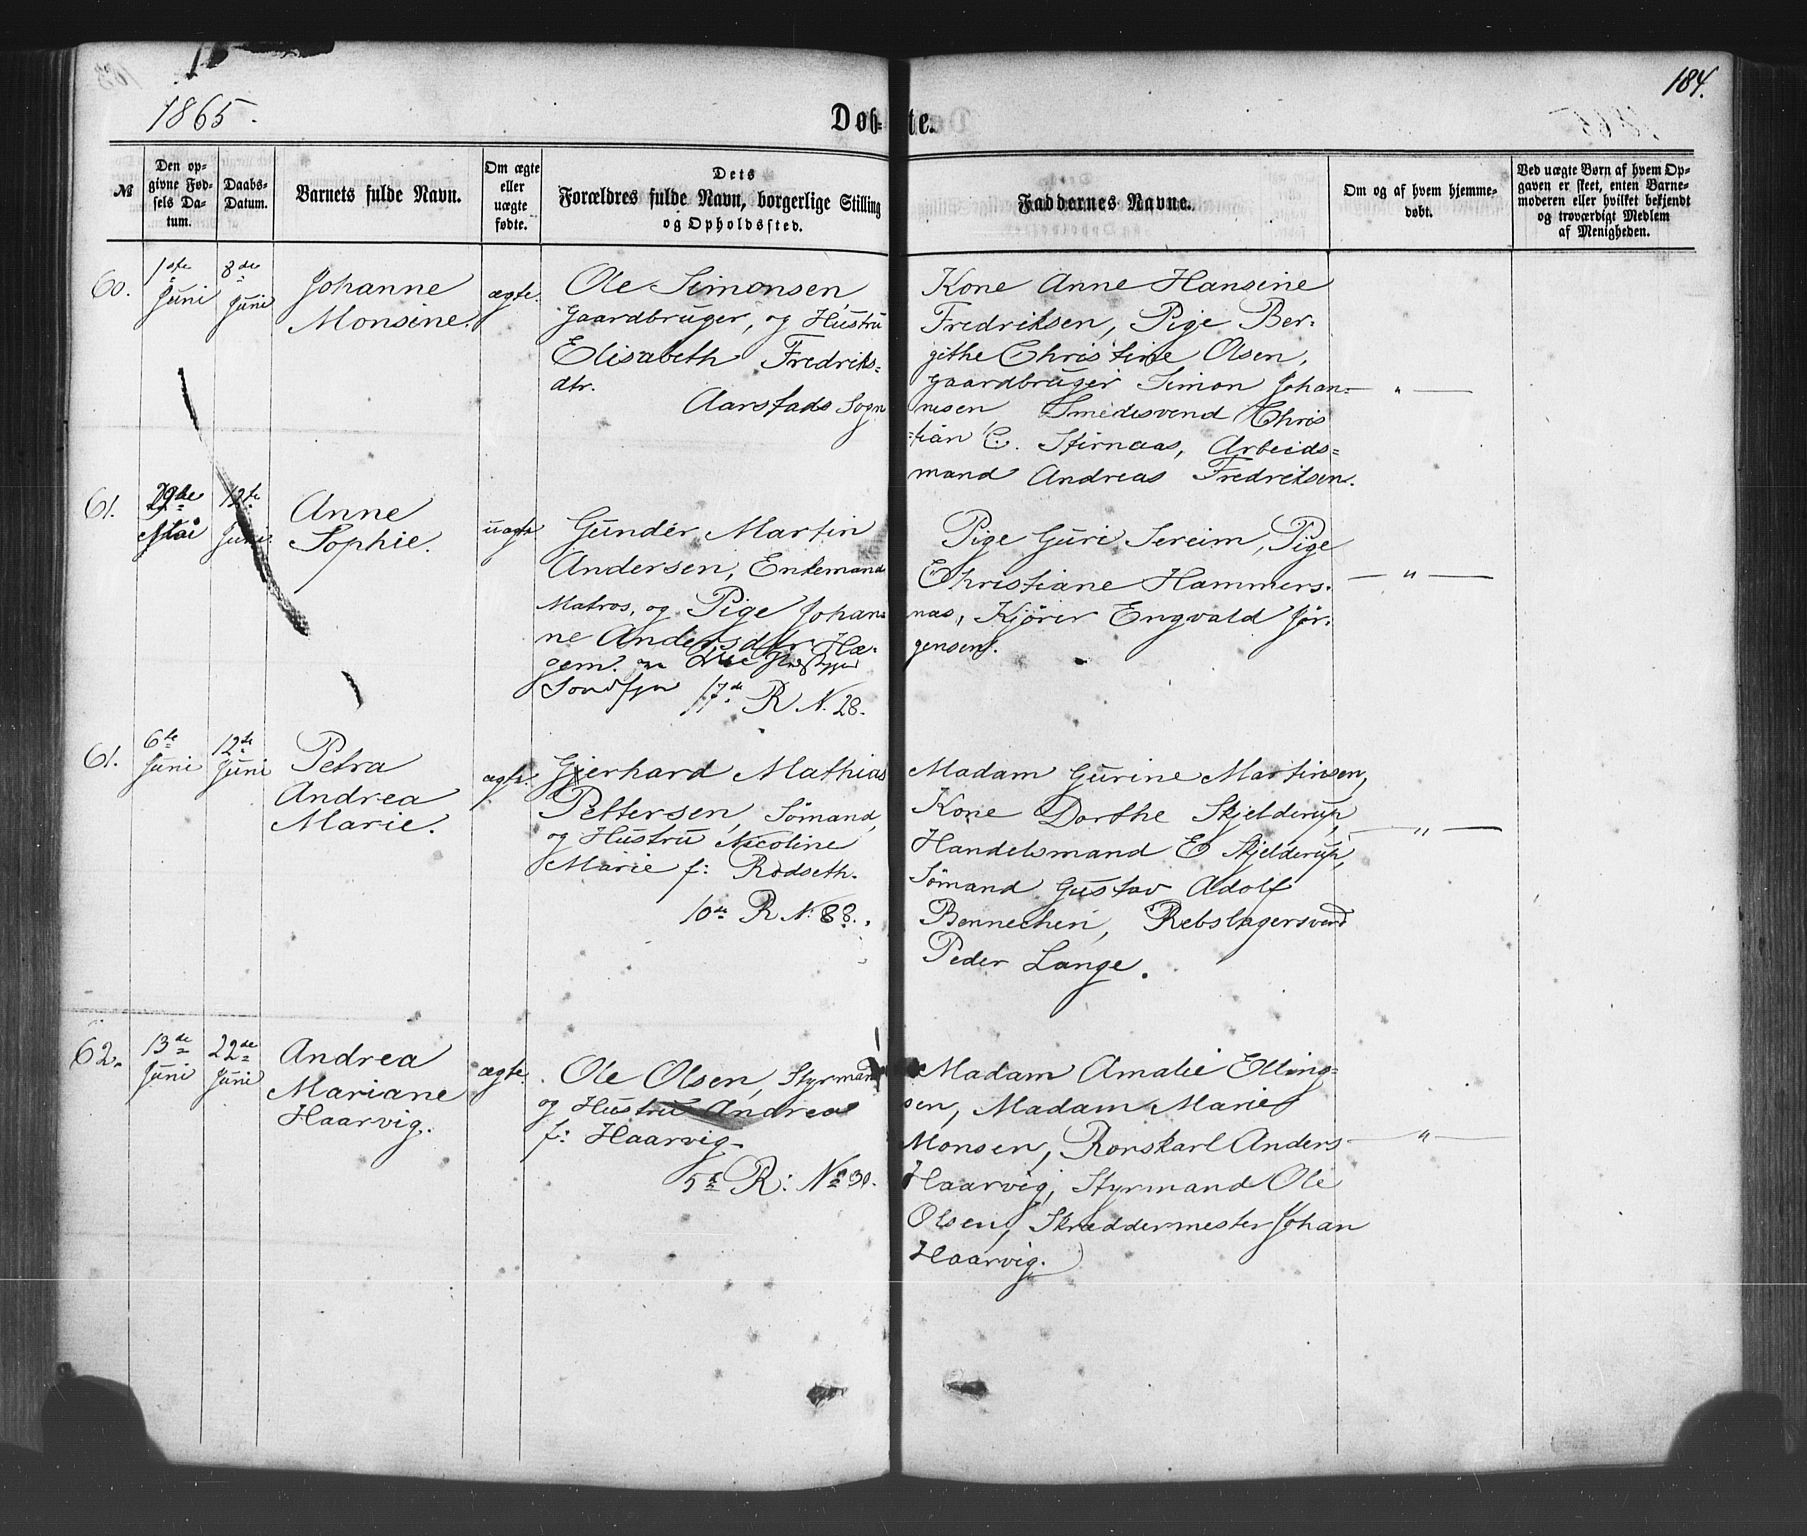 184.
1865.
Døb- te.
№
Den op-
givne Fød-
sels Da-
tum.
Daabs-
Datum.
Barnets fulde Navn.
Om ægte
eller
uægte
fødte.
Dets
Forældres fulde Navn, borgerlige Stilling
og Opholdssted.
Faddernes Navne.
Om og af hvem hjemme-
døbt.
Ved uægte Børn af hvem Op-
gaven er skeet, enten Barne-
moderen eller hvilket bekjendt
og troværdigt Medlem
af Menigheden.
60.
1ste
Juni
8de
Juni
Johanne
Monsine.
ægte.
Ole Simonsen,
Gaardbruger, og Hustru
Elisabeth Fredriks=
dtr.
Aarstads Sogn
Kone Anne Hansine
Fredriksen, Pige Ber-
githe Christine Olsen,
Gaardbruger Simon Johan-
nesen Smedesvend Chris
=tian C. Stirnaas, Arbeids=
mand Andreas Fredriksen.
— " —
61.
29de
Mai
12te
Juni
Anne
Sophie.
uægte
Gunder Martin
Andersen, Enkemand
Matros, og Pige Johan-
ne Andersdtr Hæ-
gem.
Søndfjor 17de R N. 28.
Pige Guri Sereim, Pige
Christiane Hammers-
nas, Kjører Engvald Jør-
gensen.
— " —
61.
6te
Juni
12te
Juni
Petra
Andrea
Marie.
ægte.
Gjerhard Mathias
Pettersen, Sömand,
og Hustru Nicoline
Marie f: Rødseth.
10de R N. 88.
Madam Gurine Martinsen,
Kone Dorthe Skjelderup,
Handelsmand E Skjelderup,
Sömand Gustav Adolf
Bennechen, Rebslagersvend
Peder Lange.
— " —
62.
13de
Juni
22de
Juni
Andrea
Mariane
Haarvig.
ægte.
Ole Olsen, Styrmand
og Hustru Andrea
f: Haarvig.
5te R: No 30.
Madam Amalie Elling-
sen, Madam Marie
Monsen, Rorskarl Anders
Haarvig, Styrmand Ole
Olsen, Skræddermester Johan
Haarvig.
— " —